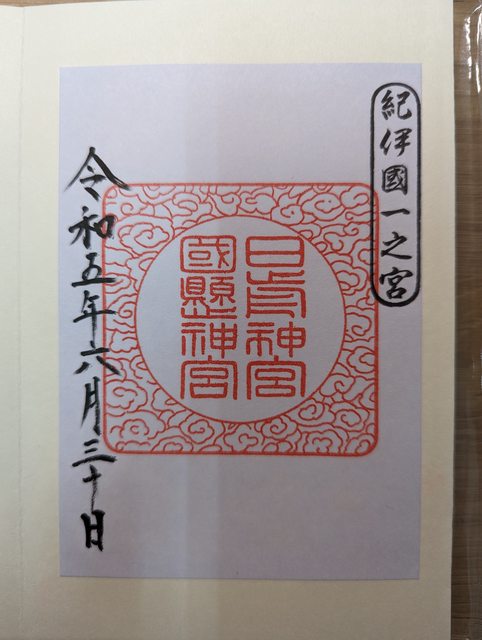 紀伊國一之宮
日前神宮
國懸神宮
令和五年六月三十日